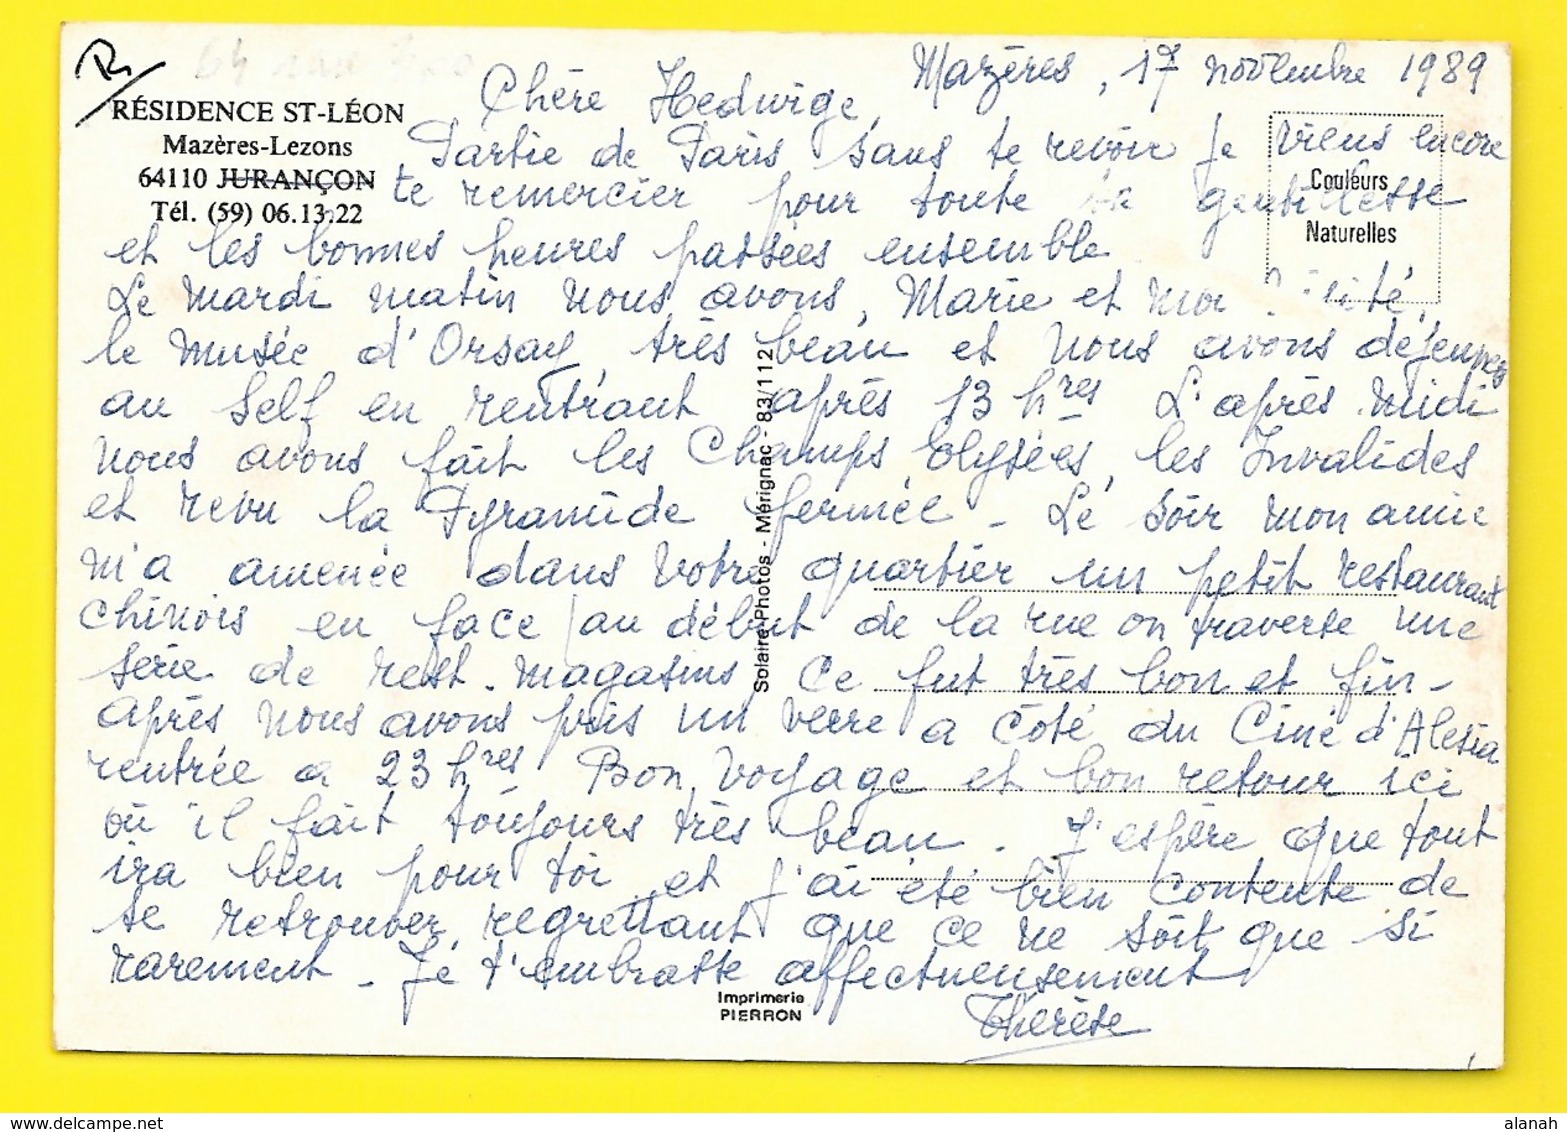 RÉSIDENCE ST-LÉON
Mazères-Lezons
64110 JURANÇON
Tél. (59) 06.13.22
Mazères, 17 novembre 1989
Chère Hedwige,
Partie de Paris sans te revoir je viens encore
te remercier pour toute ta gentillesse
et les bonnes heures passées ensemble
Le mardi matin nous avons, Marie et moi visité,
le musée d'Orsay, très beau et nous avons déjeuner
au Self en rentrant après 13 hres L'après-midi
nous avons fait les Champs Elysées, les Invalides
et revu la Pyramide fermée - Le soir mon amie
m'a amenée dans votre quartier un petit restaurant
chinois en face / au début de la rue on traverse une
série de rest. magasins Ce fut très bon et fin -
après nous avons pris un verre a côté du Ciné d'Alesia
rentrée a 23 hres Bon voyage et bon retour ici
où il fait toujours très beau. J'espère que tout
ira bien pour toi et j'ai été bien contente de
te retrouver, regrettant que ce ne soit que si
rarement - Je t'embrasse affectueusement
Thérèse
Couleurs
Naturelles
Solaire-Photos - Mérignac - 83/112
Imprimerie
PIERRON
alanah